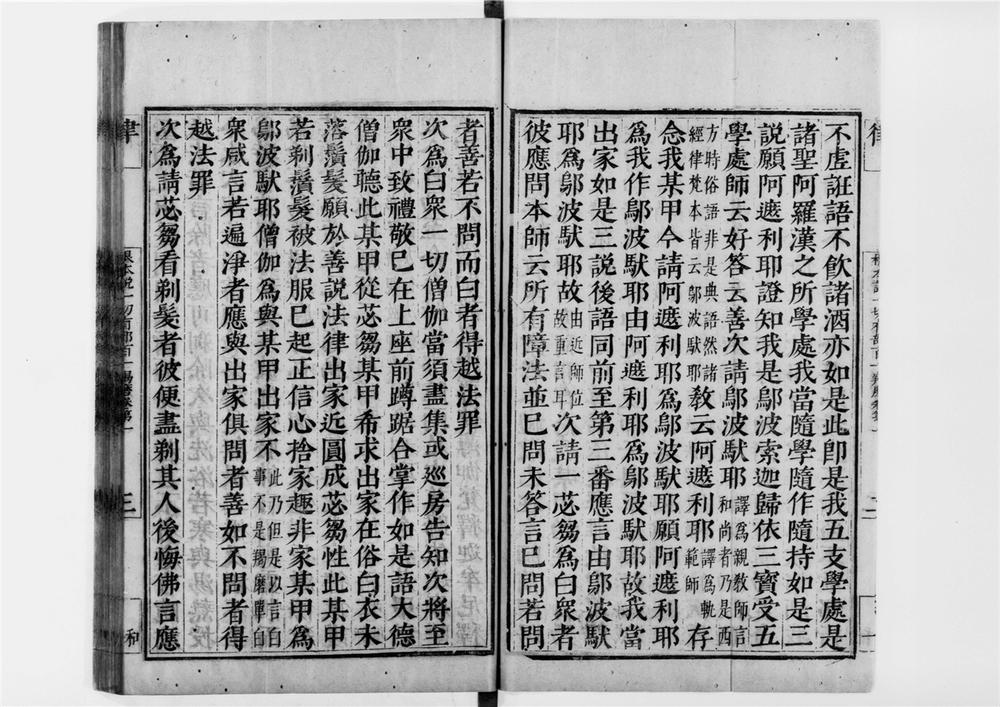 不虛誑語不飲諸酒亦如是此即是我五支學處是
諸聖阿羅漢之所學處我當隨學隨作隨持如是三
說願阿遮利耶證知我是鄔波索迦歸依三寶受五
學處師云好答云善次請鄔波馱耶譯為親教師言和尚者乃是西
方時俗語非是典語然諸經律梵本皆云鄔波馱耶教云阿遮利耶譯為軌範師存
念我某甲今請阿遮利耶為鄔波馱耶願阿遮利耶
為我作鄔波馱耶由阿遮利耶為鄔波馱耶故我當
出家如是三說後語同前至第三番應言由鄔波馱
耶為鄔波馱耶故由近師位故重言耳次請一苾芻為白眾者
彼應問本師云所有障法並已問未答言已問若問
者善若不問而白者得越法罪
次為白眾一切僧伽當須盡集或巡房告知次將至
眾中致禮敬已在上座前蹲踞合掌作如是語大德
僧伽聽此某甲從苾芻某甲希求出家在俗白衣未
落鬚髮願於善說法律出家近圓成苾芻性此某甲
若剃鬚髮被法服已起正信心捨家趣非家某甲為
鄔波馱耶僧伽為與某甲出家不此乃但是以言白事不是羯磨單白
眾咸言若遍淨者應與出家俱問者善如不問者得
越法罪
次為請苾芻看剃髮者彼便盡剃其人後悔佛言應
律 根本說一切有部百一羯磨卷第一 三 和